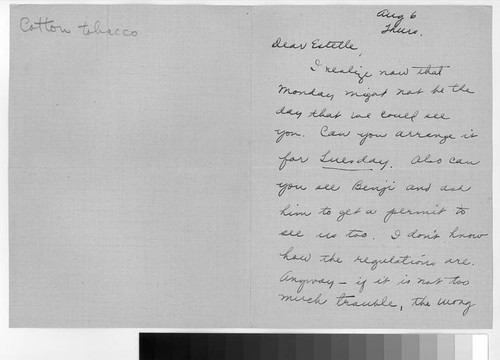 Cotton tobacco
Aug 6
Thurs.
Dear Estelle,
I realize now that
Monday might not be the
day that we could see
you. Can you arrange it
for Tuesday. Also can
you see Benji and ask
him to get a permit to
see us too. I don't know
how the regulations are.
Anyway – if it is not too
much trouble, the Wong